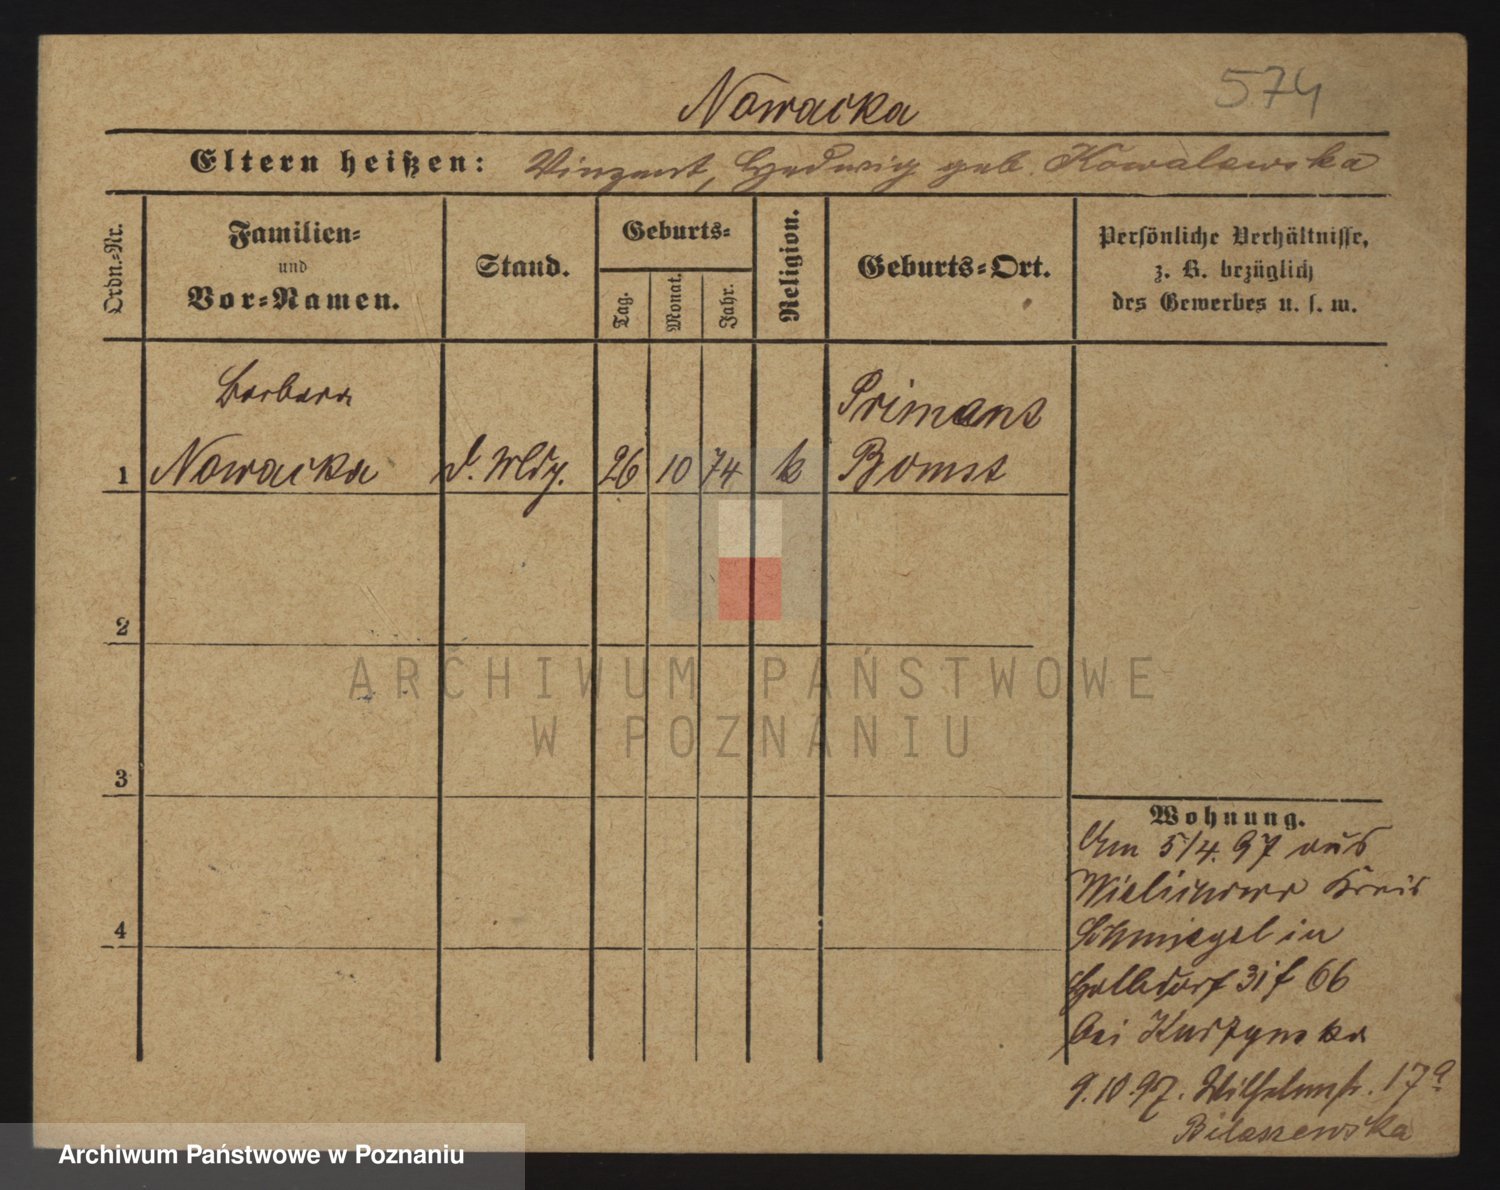 574
Nowacka
Eltern heißen: Vinzent, Hedwig geb. Kowalewska
Ordn.-Nr.
Familien-
und
Vor-Namen.
Stand.
Geburts-
Tag.
Monat.
Jahr.
Religion.
Geburts-Ort.
Persönliche Verhältnisse,
z. B. bezüglich
des Gewerbes u. s. w.
Barbara
Primant
1 Nowacka d. Wldg. 26 10 74 k Bomst
2
3
4
Wohnung.
Am 5/4. 97 aus
Wielichowo Kreis
Schmiegel in
Halbdorf 31 f 66
bei Kurzynska
9.10.97. Wilhelmstr. 17a
Bilaszewska
ARCHIWUM PAŃSTWOWE
W POZNANIU
Archiwum Państwowe w Poznaniu